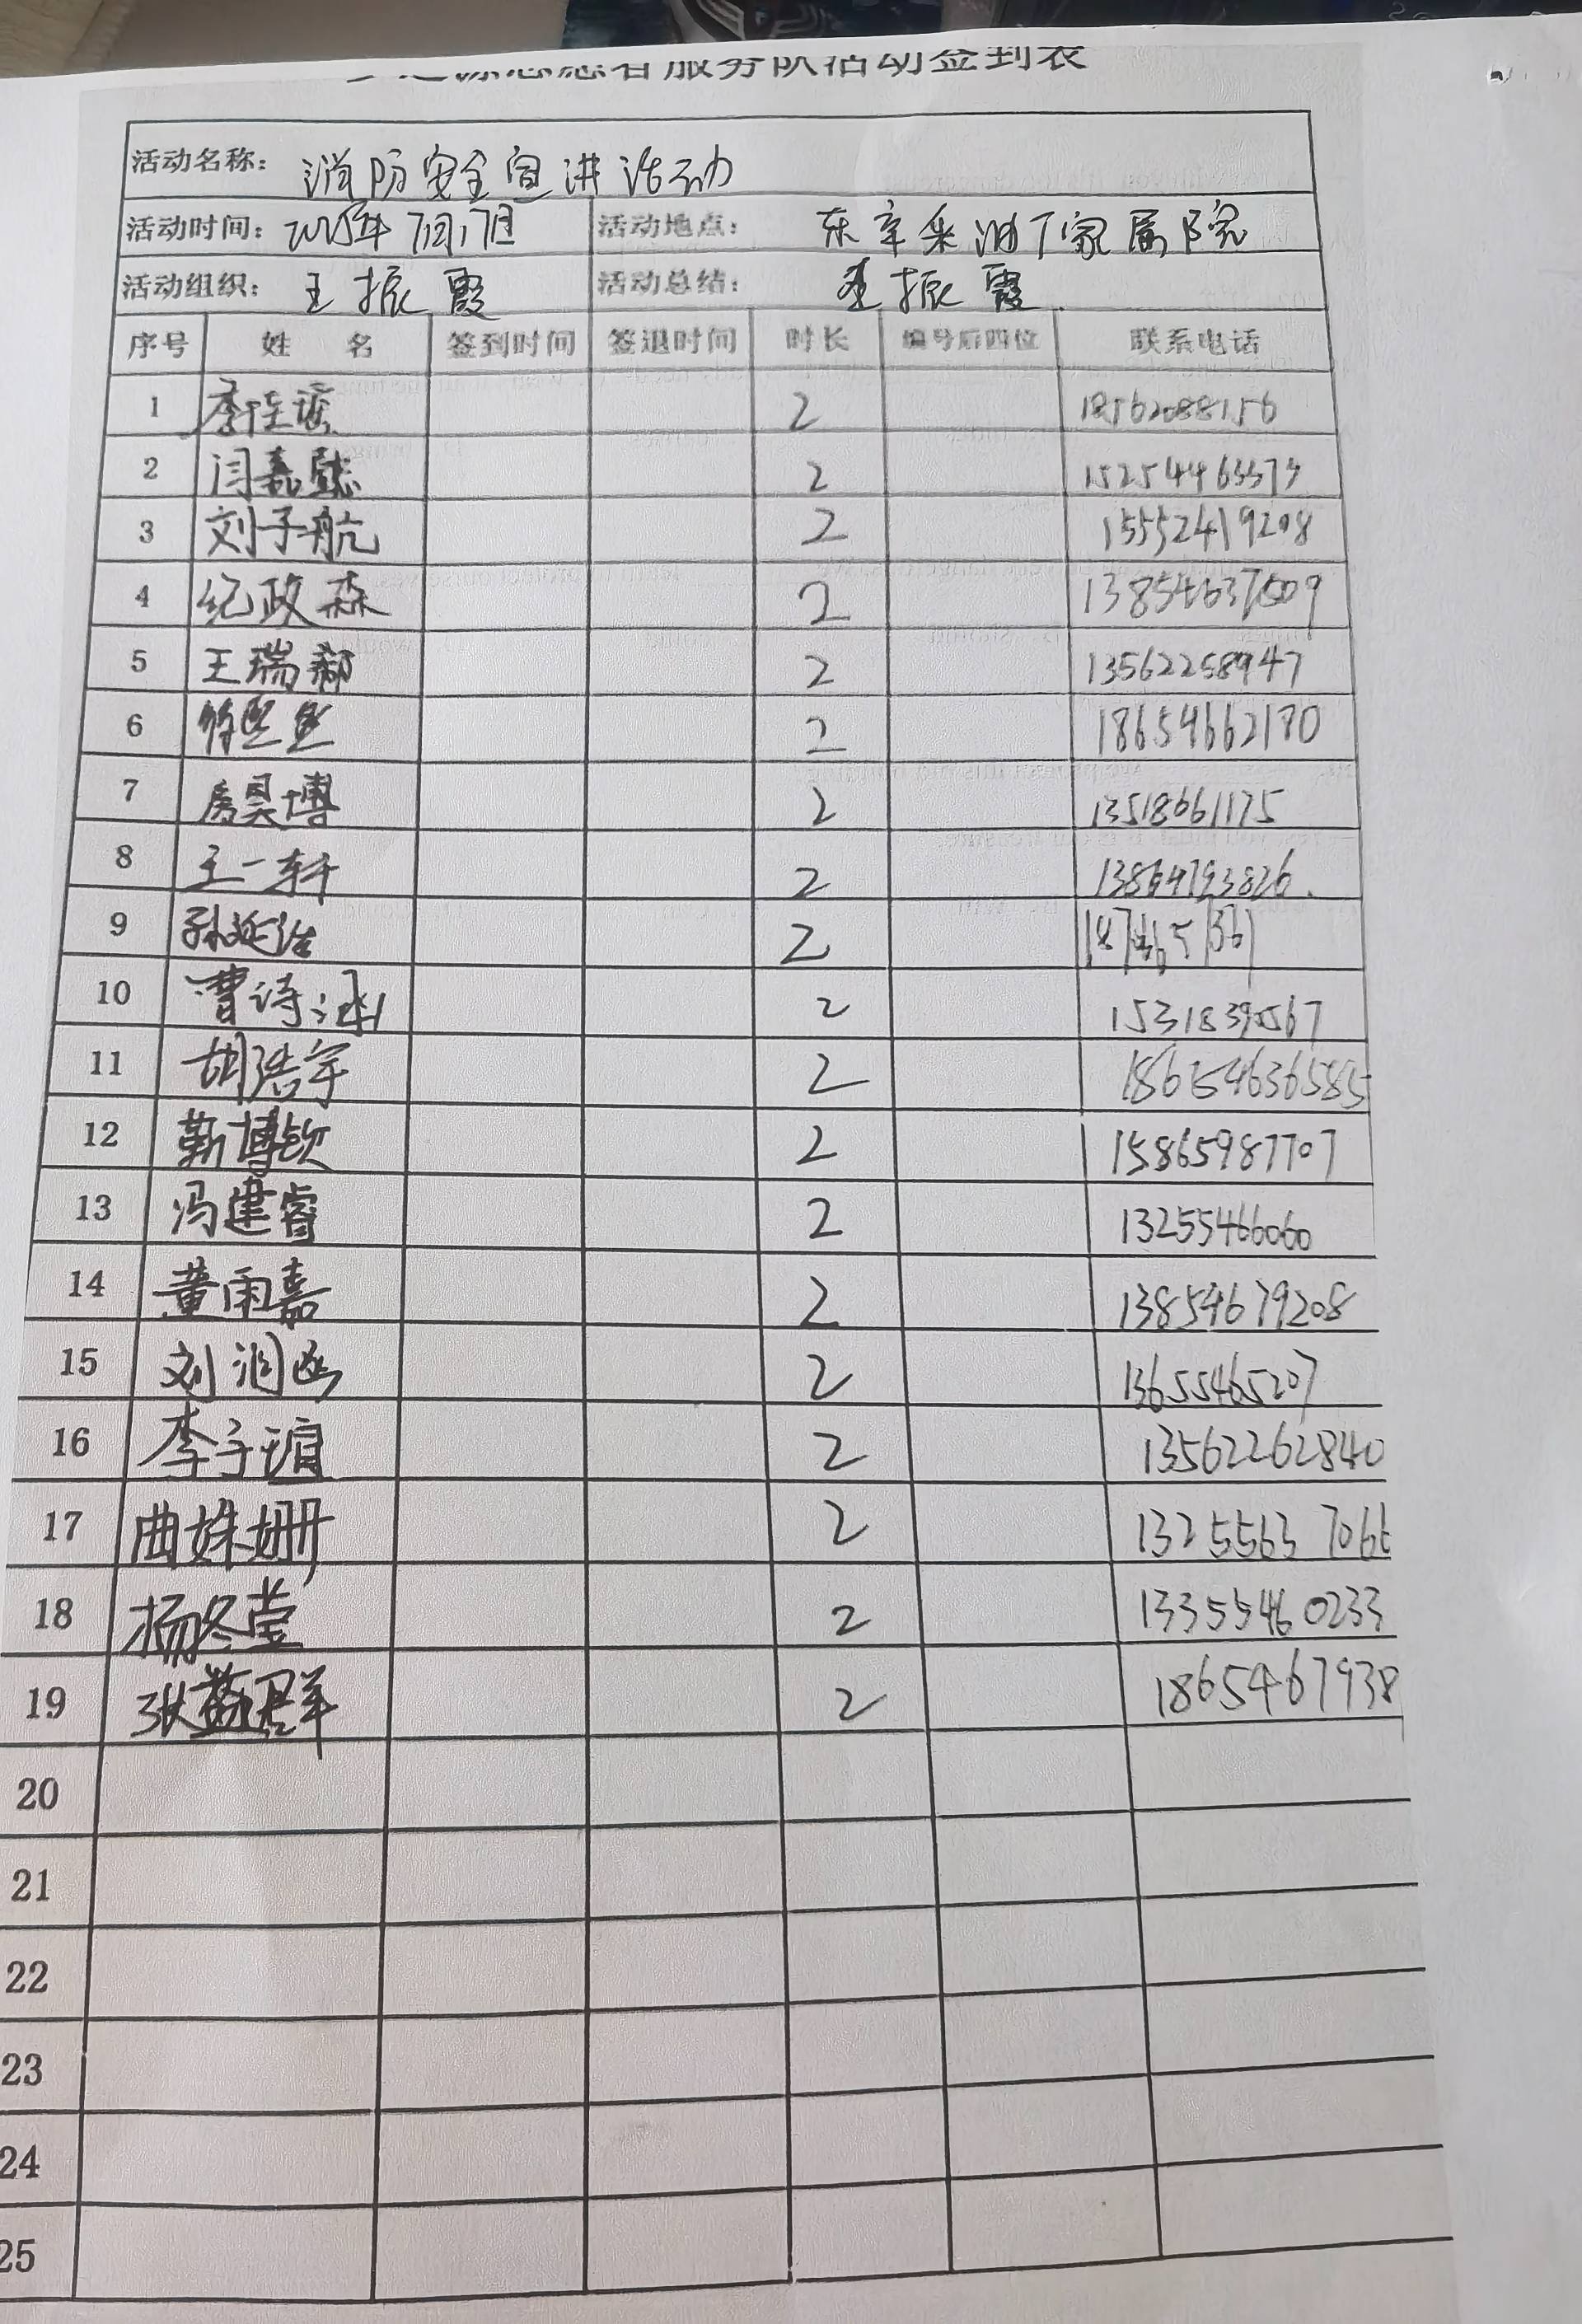 服务队活动签到表
活动名称： 消防安全宣讲活动
活动时间： 2025年7月17日 活动地点： 东辛采油厂家属院
活动组织： 王振霞 活动总结： 王振霞
序号 姓 名 签到时间 签退时间 时长 编号后四位 联系电话
1 2 18562088156
2 闫嘉懿 2
3 刘子航 2 15552419208
4 纪政森 2 13854637509
5 王瑞 2 13562258947
6 2 18654662180
7 房昊博 2 13518661175
8 王一轩 2 13864793826
9 2
10 曹诗涵 2 15318390567
11 胡浩宇 2 18654636585
12 靳博钦 2 15865987707
13 冯建睿 2 13255466060
14 黄雨嘉 2 13854679208
15 刘润 2 13655465207
16 李子瑄 2 13562262840
17 曲姝姗 2 1325563 7066
18 杨冬莹 2 13355460233
19 张 群 2 1865467938
20
21
22
23
24
25